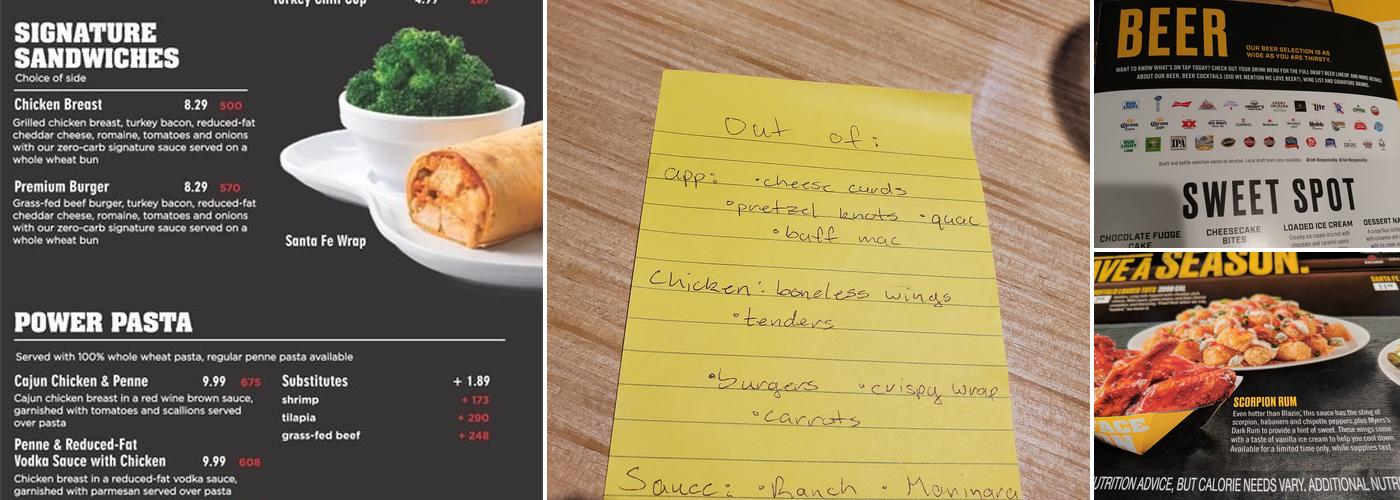 Turkey Chili Cup 4.99 287
SIGNATURE
SANDWICHES
Choice of side
Chicken Breast 8.29 500
Grilled chicken breast, turkey bacon, reduced-fat
cheddar cheese, romaine, tomatoes and onions
with our zero-carb signature sauce served on a
whole wheat bun
Premium Burger 8.29 570
Grass-fed beef burger, turkey bacon, reduced-fat
cheddar cheese, romaine, tomatoes and onions
with our zero-carb signature sauce served on a
whole wheat bun
Santa Fe Wrap
POWER PASTA
Served with 100% whole wheat pasta, regular penne pasta available
Cajun Chicken & Penne 9.99 675
Cajun chicken breast in a red wine brown sauce,
garnished with tomatoes and scallions served
over pasta
Penne & Reduced-Fat
Vodka Sauce with Chicken 9.99 608
Chicken breast in a reduced-fat vodka sauce,
garnished with parmesan served over pasta
Substitutes + 1.89
shrimp + 173
tilapia + 290
grass-fed beef + 248
Out of:
app: • cheese curds
• pretzel knots • guac
• buff mac
Chicken: boneless wings
• tenders
• burgers • crispy wrap
• carrots
Sauce: • Ranch • Marinara
BEER
OUR BEER SELECTION IS AS
WIDE AS YOU ARE THIRSTY.
WANT TO KNOW WHAT'S ON TAP TODAY? CHECK OUT YOUR DRINK MENU FOR THE FULL DRAFT BEER LINEUP, AND MORE DETAILS
ABOUT OUR BEER, BEER COCKTAILS (DID WE MENTION WE LOVE BEER?), WINE LIST AND SIGNATURE DRINKS.
BUD LIGHT
Lite
Corona Extra
Corona Light
XX
Modelo
BUD LIGHT LIME
IPA
Draft and bottle selection varies by location. Local draft beers also available. Drink Responsibly. Drive Responsibly.
SWEET SPOT
CHOCOLATE FUDGE
CAKE
CHEESECAKE
BITES
LOADED ICE CREAM
Creamy ice cream drizzled with
chocolate and caramel sauce
DESSERT NA
VE A SEASON.
BUFFALO LOADED TOTS 2090 CAL
SANTA FE
SCORPION RUM
Even hotter than Blazin', this sauce has the sting of
scorpion, habanero and chipotle peppers, plus Myers's
Dark Rum to provide a hint of sweet. These wings come
with a taste of vanilla ice cream to help you cool down.
Available for a limited time only, while supplies last.
FACE
UTRITION ADVICE, BUT CALORIE NEEDS VARY. ADDITIONAL NUT